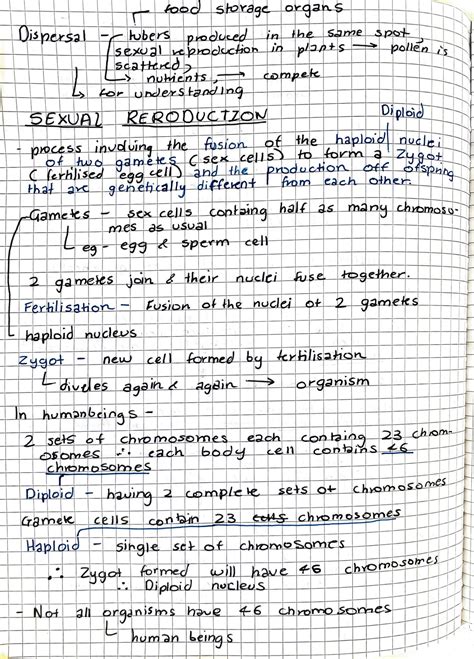 food storage organs
Dispersal - tubers produced in the same spot,
sexual reproduction in plants → pollen is
scattered,
→ nutrients, → compete
↳ for understanding
SEXUAL RERODUCTION
Diploid
- process involving the fusion of the haploid nuclei
of two gametes (sex cells) to form a zygot
(fertilised egg cell) and the production off ofspring
that are genetically different from each other.
Gametes - sex cells containg half as many chromoso-
mes as usual
eg - egg & sperm cell
2 gametes join & their nuclei fuse together.
Fertilisation - Fusion of the nuclei of 2 gametes
haploid nucleus
Zygot - new cell formed by fertilisation
divides again & again → organism
In humanbeings -
2 sets of chromosomes each containg 23 chrom-
osomes ∴ each body cell contains 46
chromosomes
Diploid - having 2 complete sets of chromosomes
Gamete cells contain 23 cells chromosomes
Haploid - single set of chromosomes
∴ Zygot formed will have 46 chromosomes
∴ Diploid nucleus
- Not all organisms have 46 chromosomes
human beings